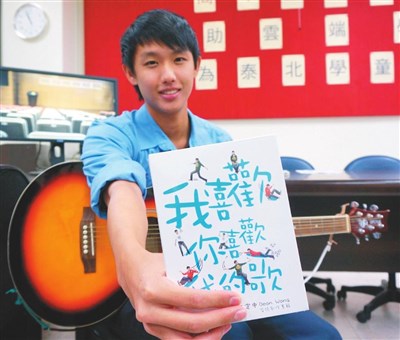 助雲端
為泰北學童
我喜歡
你喜歡
我的歌